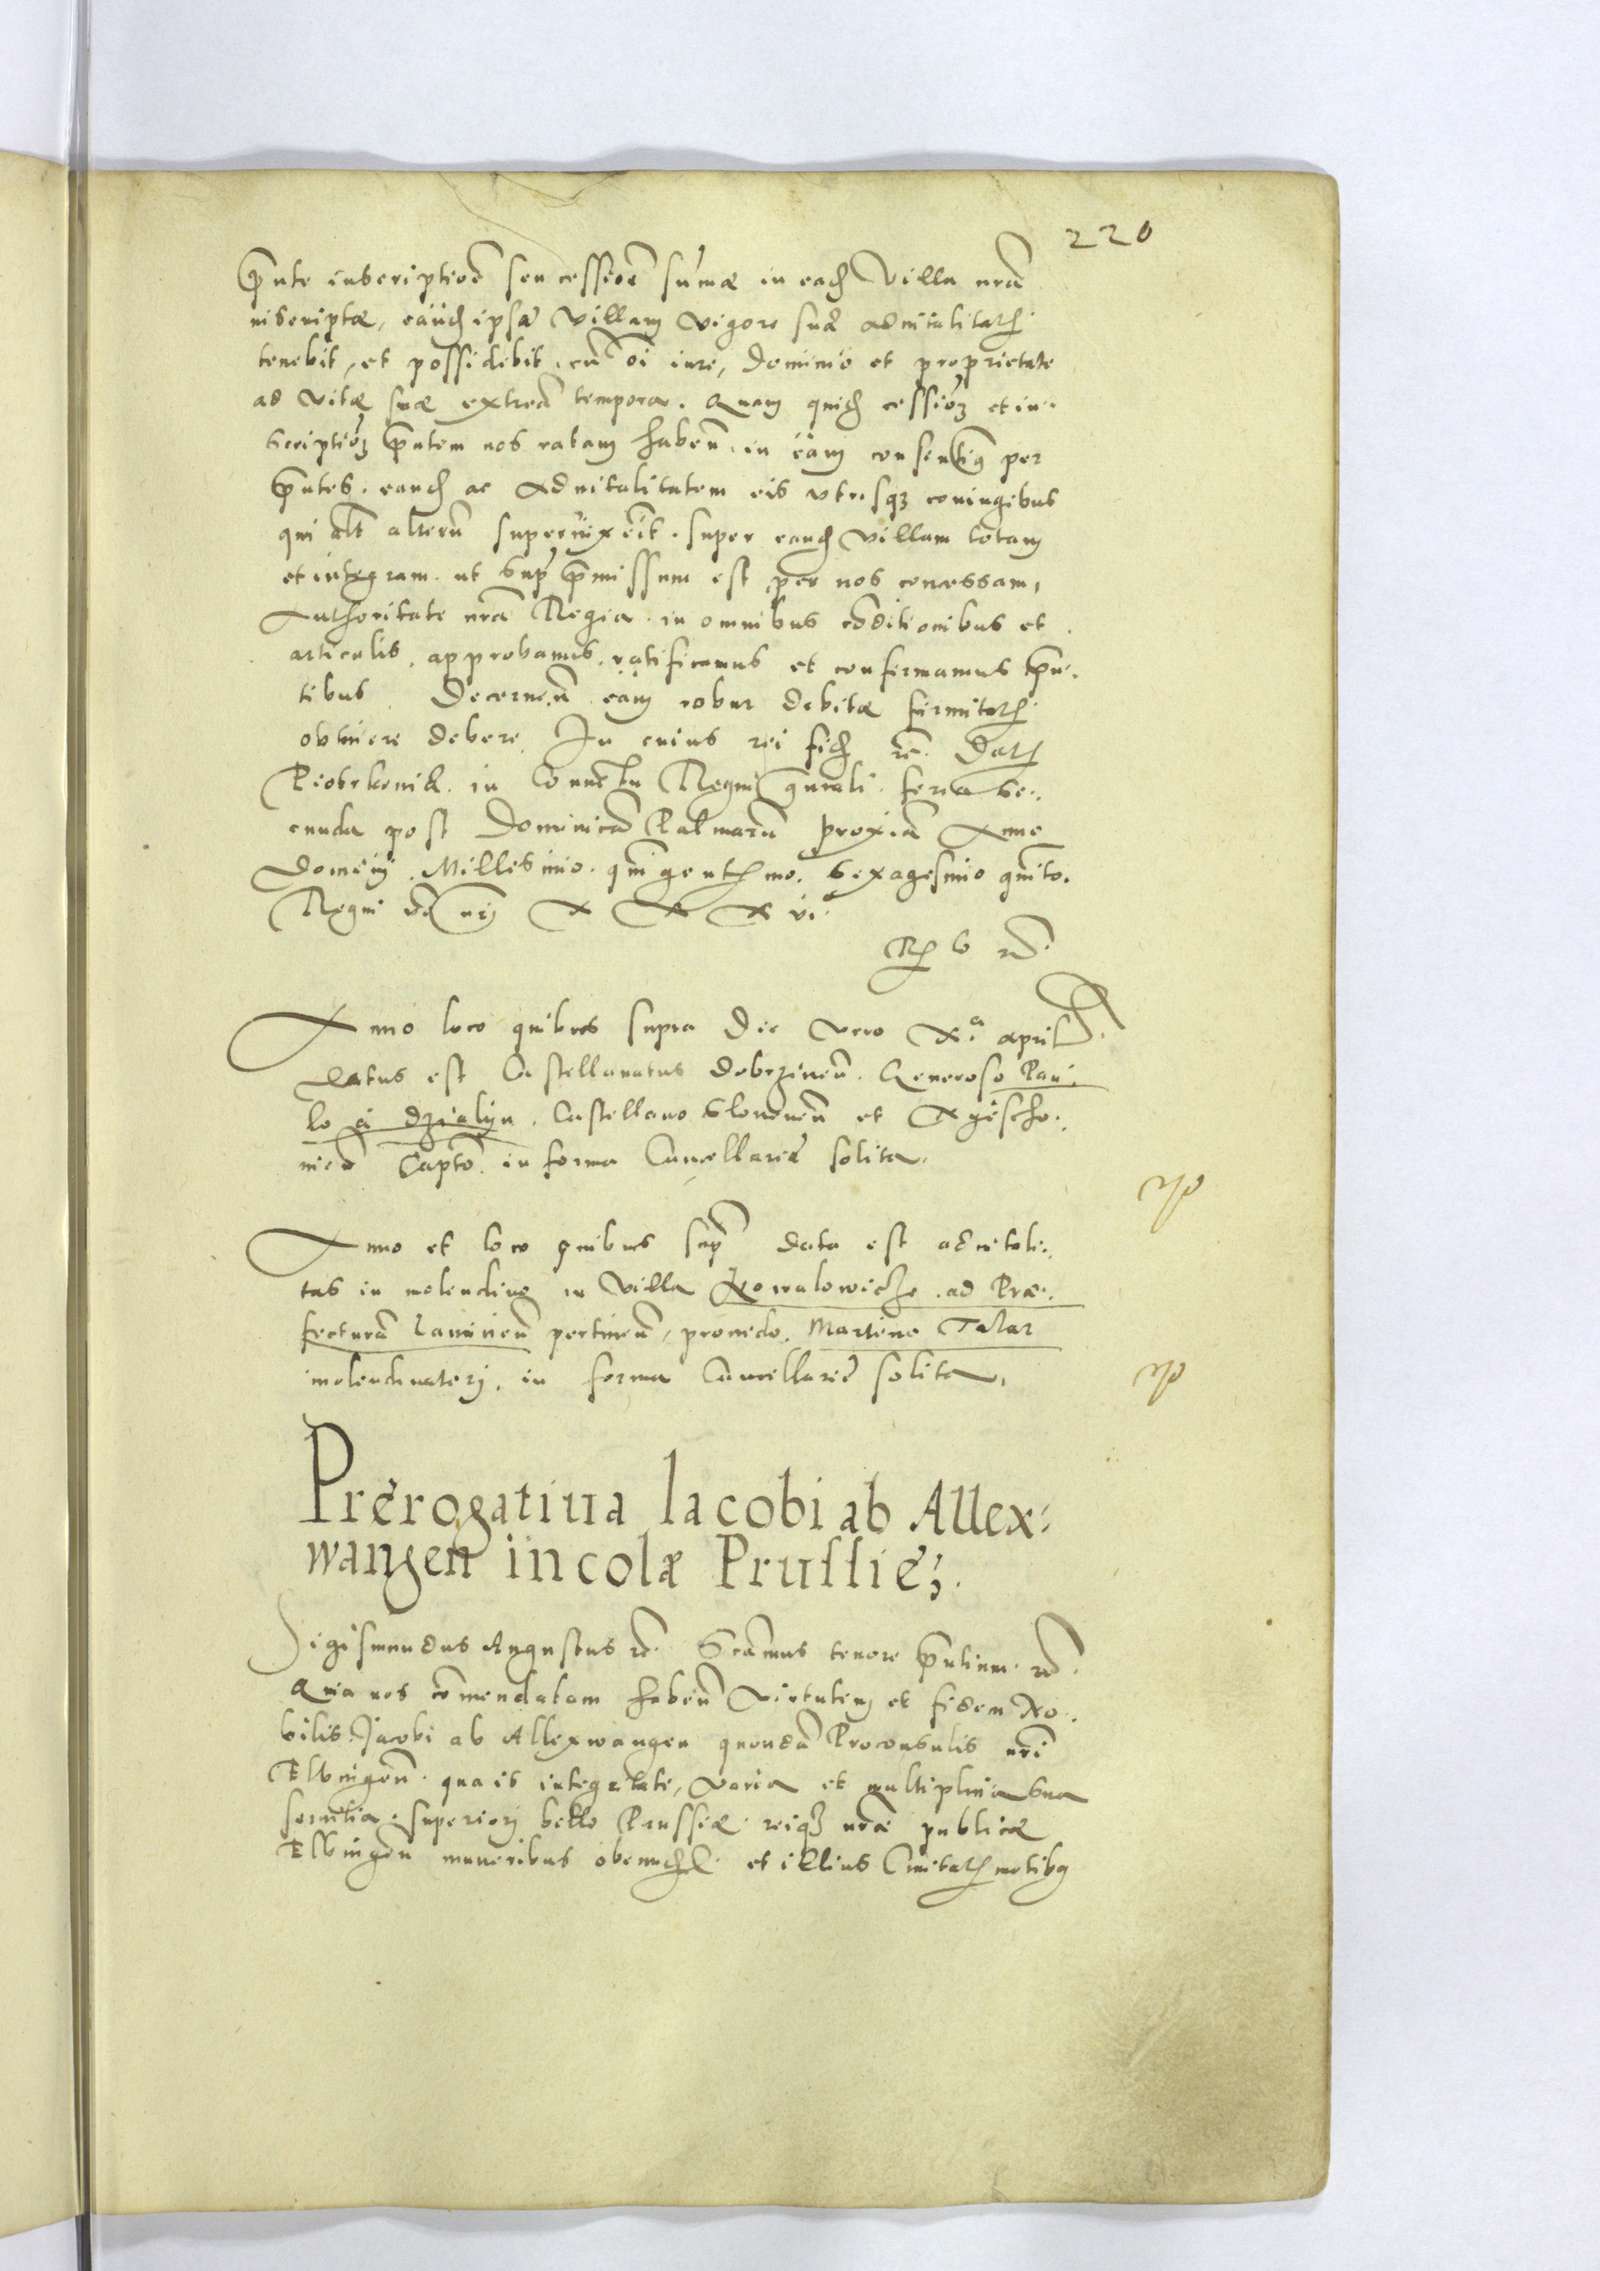 220
pnte inscriptioe seu cessioe sumæ in eadē Villa nra
inscriptæ, eandē ipsā Villam vigore suæ aduitalitatē
tenebit, et possidebit, cū oī iure, dominio et proprietate
ad vitæ suæ extrea tempora. Quam quidē cessioē et in-
scriptioē pntem nos ratam haben. in eam consentiēs per
pntes. eandē ac Aduitalitatem eis vtrisqȝ coniugibus
qui alt alterū superuixerit. super eandē Villam totam
et integram. ut supra pmissum est per nos concessam,
Authoritate nra Regia. in omnibus cōditionibus et
articulis. approbamus. ratificamus et confirmamus pn-
tibus. Decernen. eam robur debitæ firmitatē
obtinere debere. In cuius rei fidē rc. Datē
Piotrkouiæ. in Conuētu Regni gnrali. feria se-
cunda post Dominicā Palmarū proxiā Anno
Domini. Millesimo. quingentē mo. Sexagesimo quinto.
Regni vō nri XXXVI.
Anno loco quibus supra die vero X.a april
Datus est Castellanatus Dobrzinen. Generoso Pau-
lo a Dzialyn. Castellano Slonen et
Capto. in forma Cancellariæ solita.
Anno et loco quibus supra data est aduitali-
tas in molendino in Villa Kowalowicze. ad Præ-
fecturā pertinen, prouido. Martino Talar
molendinatorj. in forma Cancellariæ solita,
Prerogatiua Iacobi ab Allex-
wangen incolæ Prussię;.
Sigismundus Augustus rc. Scāmus tenore pntium. rc.
Quia nos cōmendatam haben virtutem et fidem No-
bilis. Jacobi ab Allexwangen quondā Proconsulis nrī
Elbingen. qua is integritate, varia et multiplicia sua
seruitia. superiorj bello Prussiæ. reiqȝ nræ publicæ
Elbingen muneribus et illius Ciuitatē motibȝ